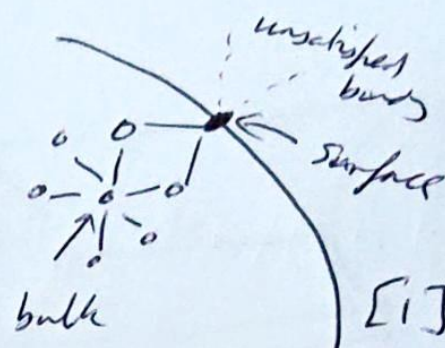 unsatisfied
bonds
surface
bulk
[1]